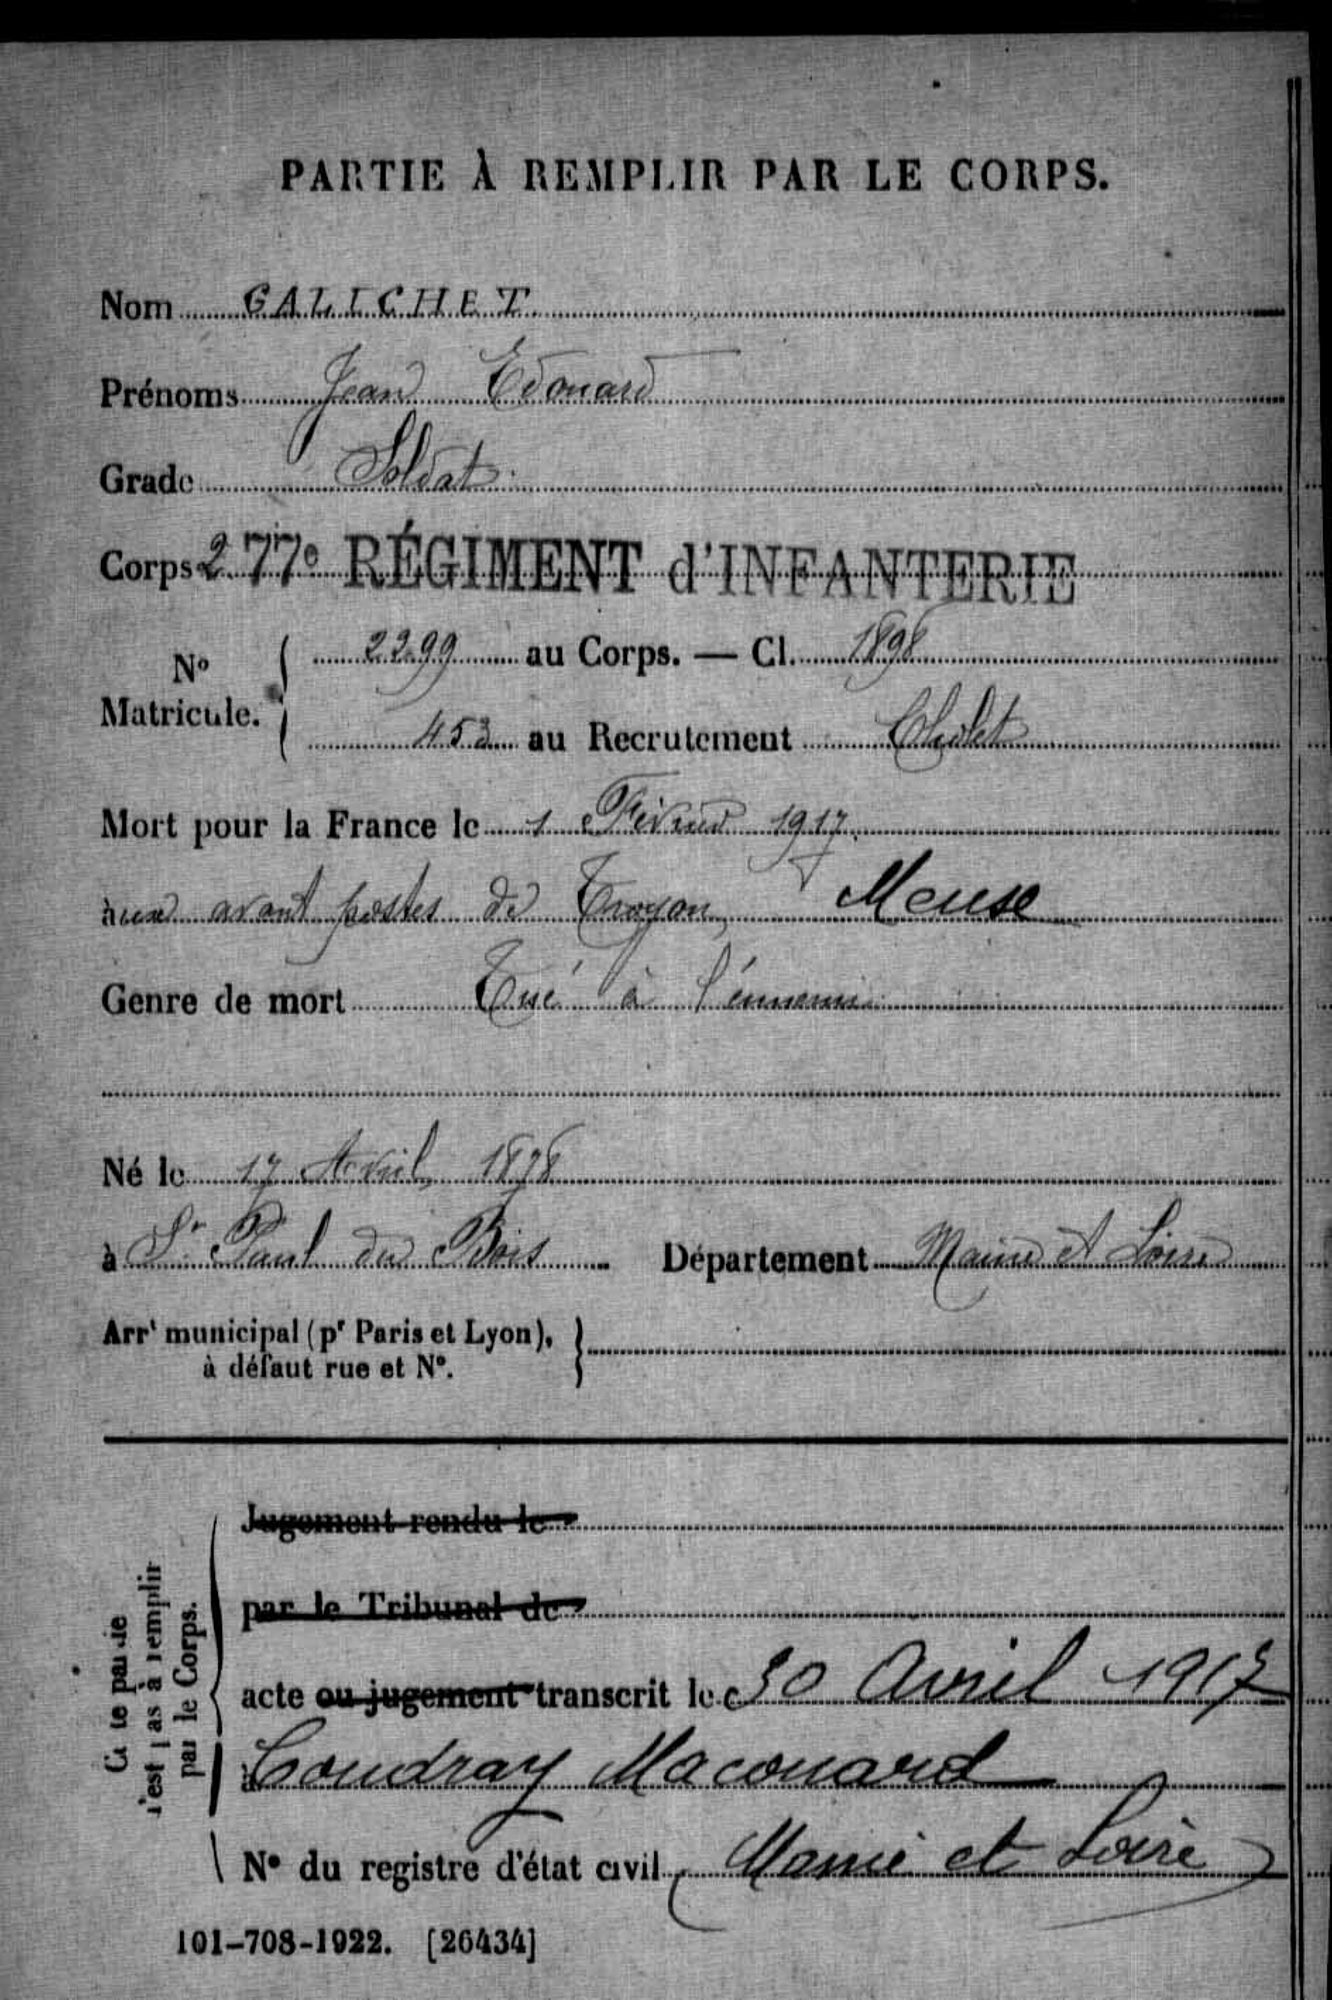 PARTIE À REMPLIR PAR LE CORPS.
Nom GALICHET
Prénoms Jean Edouard
Grade Soldat
Corps 277e RÉGIMENT d'INFANTERIE
No Matricule. 2299 au Corps. — Cl. 1898
453 au Recrutement Cholet
Mort pour la France le 1 Février 1917
aux avant postes de Troyon, Meuse
Genre de mort Tué à l'ennemi
Né le 17 Avril 1878
à St Paul du Bois Département Maine et Loire
Arrt municipal (pr Paris et Lyon),
à défaut rue et No.
Cette partie
n'est pas à remplir
par le Corps.
Jugement rendu le
par le Tribunal de
acte ou jugement transcrit le 30 Avril 1917
à Coudray Macouard
No du registre d'état civil Maine et Loire
101-708-1922. [26434]